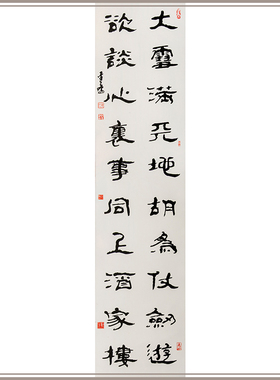 大雪满天地胡為仗劍遊
欲談心裏事同上酒家樓